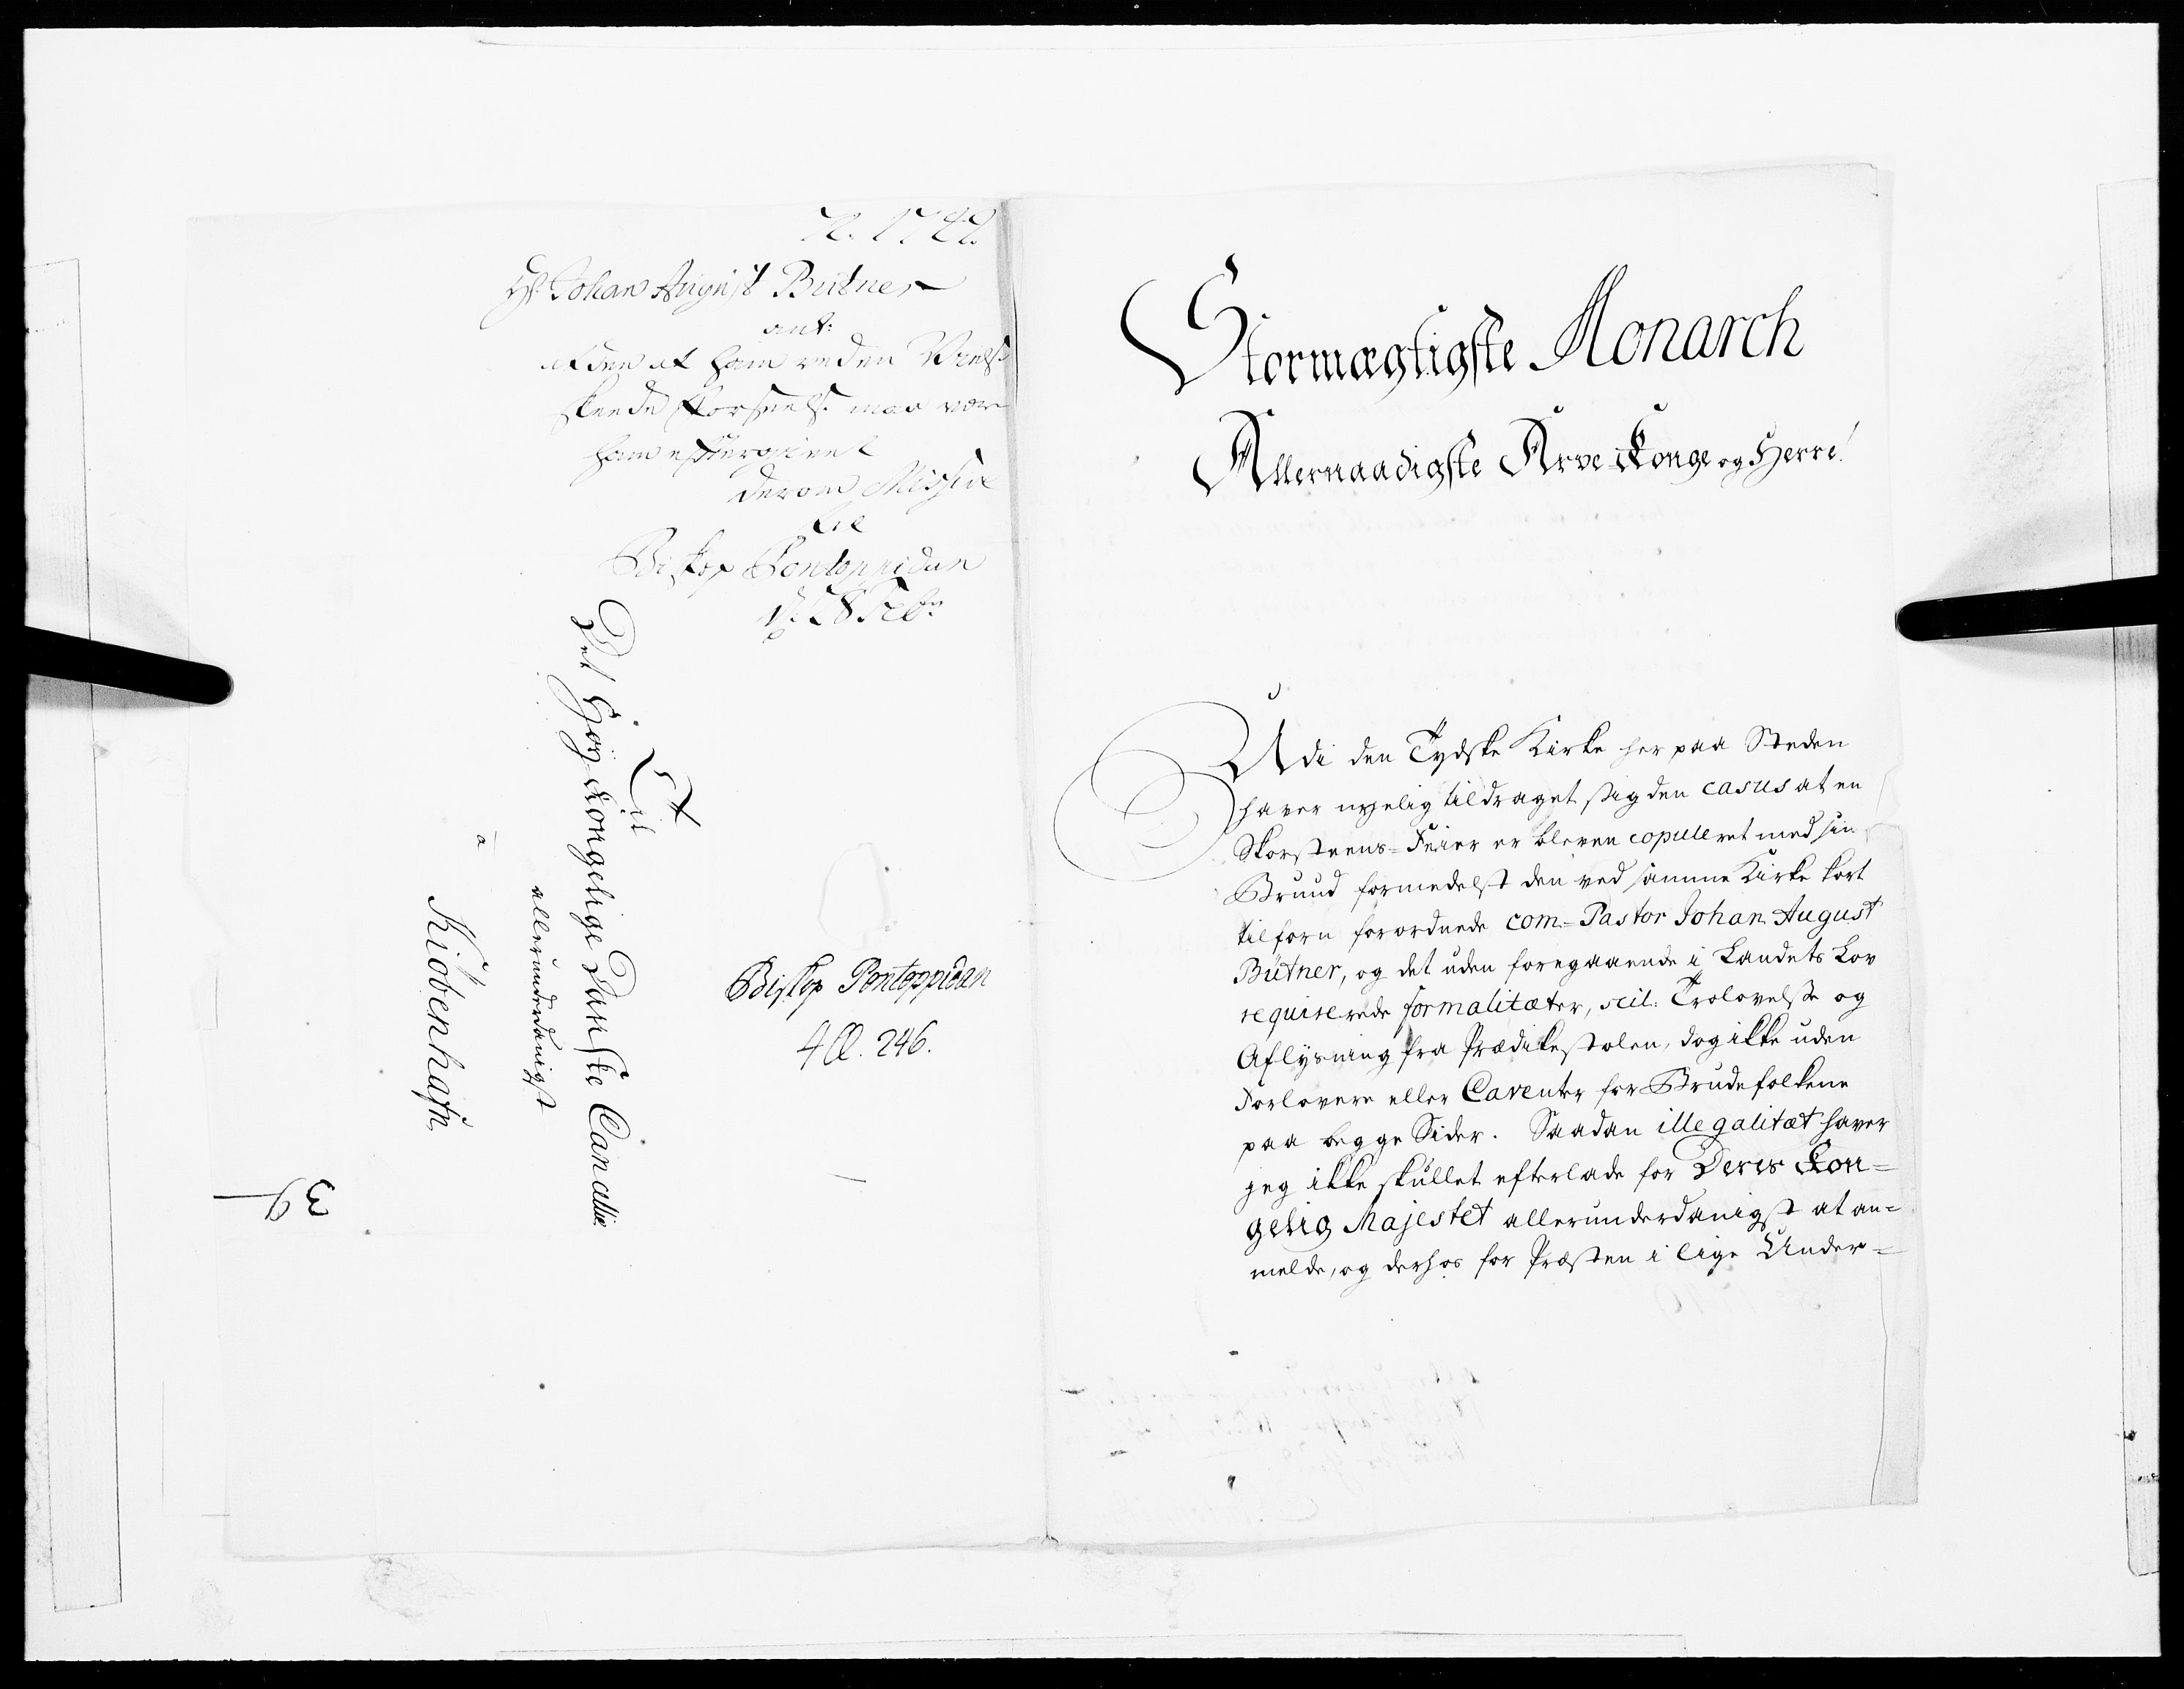 Hr Johan August Bütner
ant:
at den af ham ved en Vielse
skeede Forseelse maa være
ham eftergivet
derom Missive
til
Biskop Pontoppidan
d: 28 Febr
Til
Det Høy Kongelige Danske Cancellie
allerunderdanigst
a
Kiöbenhafn
Biskop Pontoppidan
All. 246.
39
Stormægtigste Monarch
Allernaadigste Arve Konge og Herre!
Udi den Tydske Kirke her paa Steden
haver nyelig tildraget sig den casus at en
Skorsteens-Feier er bleven copuleret med sin
Bruud formedelst den ved samme Kirke kort
tilforn forordnede com-Pastor Johan August
Bütner, og det uden foregaaende i Landets Lov
requirerede formalitæter, scil: Trolovelse og
Aflysning fra Prædikestolen, dog ikke uden
Forlovere eller Caventer for Brudefolkene
paa begge Sider. Saadan illegalitæt haver
jeg ikke skullet efterlade for Deres Kon=
gelig Majestet allerunderdanigst at an=
melde, og derhos for Præsten i lige Under=